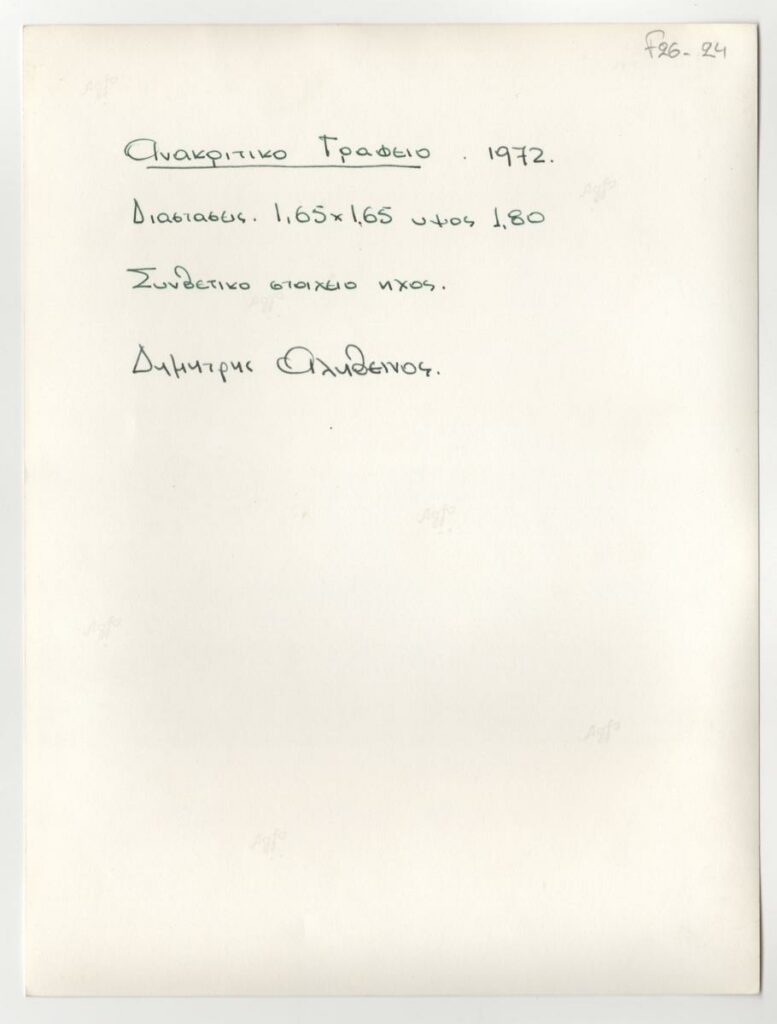 F26-24
Ανακριτικο Γραφειο . 1972.
Διαστασεις. 1,65×1,65 υψος 1,80
Συνθετικο στοιχειο ηχος.
Δημητρης Αληθεινος.
Agfa
Agfa
Agfa
Agfa
Agfa
Agfa
Agfa